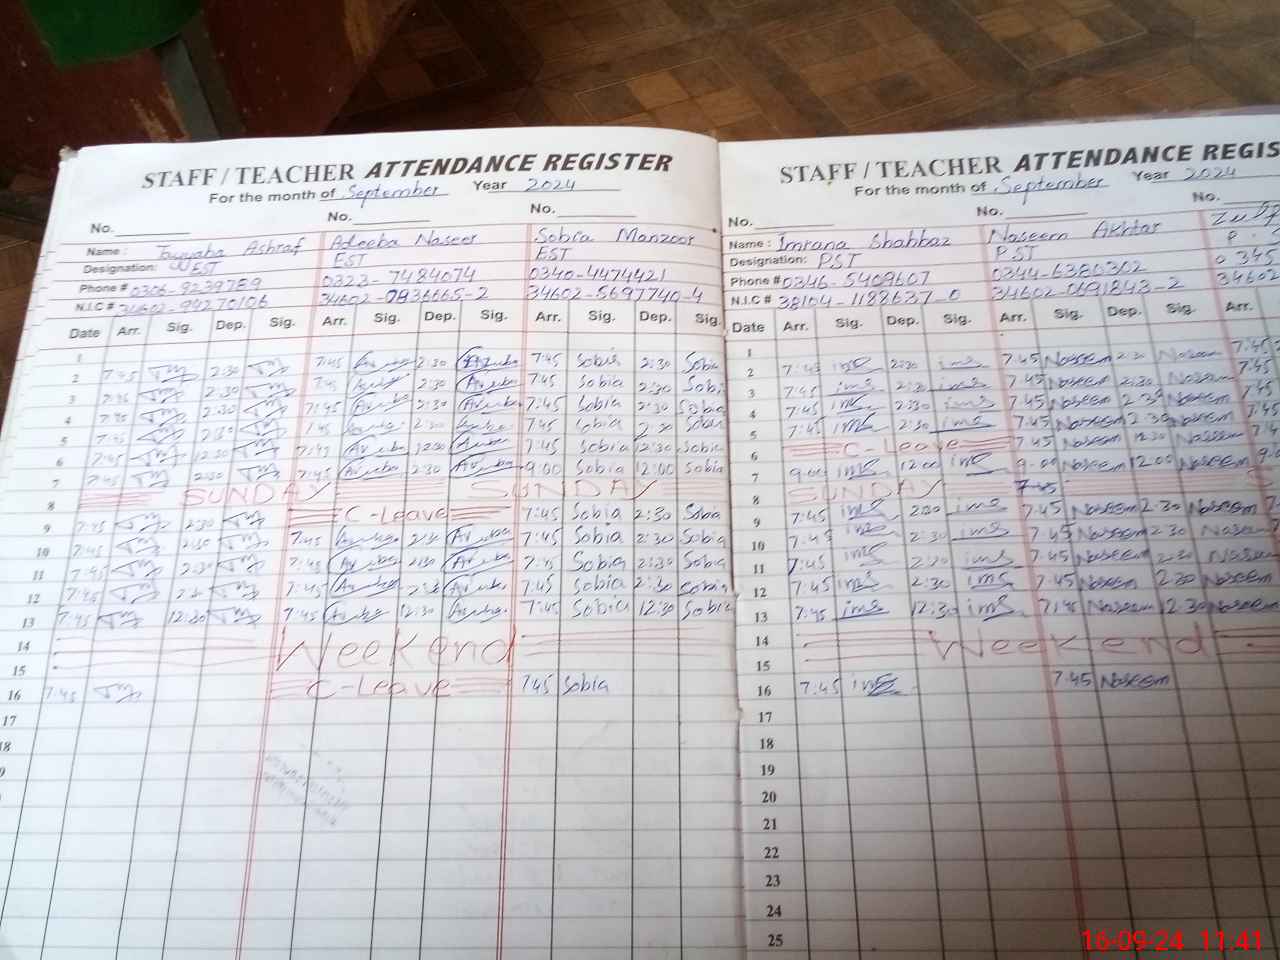 STAFF / TEACHER ATTENDANCE REGISTER
For the month of September Year 2024
No. No. No.
Name : Ashraf Adeeba Naseer Sobia Manzoor
Designation: EST EST EST
Phone # 0306-9239759 0323-7484074 0340-4474421
N.I.C # 34602-5697740-4
Date Arr. Sig. Dep. Sig. Arr. Sig. Dep. Sig. Arr. Sig. Dep. Sig.
1
2 7:45 2:30 7:45 2:30 7:45 Sobia 2:30 Sobia
3 7:45 2:30 7:45 2:30 7:45 Sobia 2:30
4 7:45 2:30 7:45 2:30 7:45 Sobia 2:30 Sobia
5 7:45 2:30 7:45 2:30 7:45 Sobia 2:30 Sobia
6 7:45 12:30 7:45 12:30 7:45 Sobia 12:30 Sobia
7 7:45 2:30 7:45 2:30 9:00 Sobia 12:00 Sobia
8 SUNDAY SUNDAY
9 7:45 2:30 C-Leave 7:45 Sobia 2:30 Sobia
10 7:45 2:30 7:45 2:30 7:45 Sobia 2:30 Sobia
11 7:45 2:30 7:45 2:30 7:45 Sobia 2:30 Sobia
12 7:45 7:45 2:30 7:45 Sobia 2:30 Sobia
13 7:45 12:30 7:45 12:30 7:45 Sobia 12:30 Sobia
14 Weekend
15
16 7:45 C-Leave 7:45 Sobia
17
18
STAFF / TEACHER ATTENDANCE REGIS
For the month of September Year 2024
No. No. No.
Name : Imrana Shahbaz Naseem Akhtar
Designation: PST PST
Phone # 0346-5409607 0344-6380302 0345
N.I.C # 38104-1188637-0 34602-0691843-2 34602
Date Arr. Sig. Dep. Sig. Arr. Sig. Dep. Sig. Arr.
1
2 7:45 ims 2:30 ims 7:45 Naseem 2:30 Naseem 7:45
3 7:45 ims 2:30 ims 7:45 Naseem 2:30 Naseem 7:45
4 7:45 ims 2:30 ims 7:45 Naseem 2:30 Naseem 7:45
5 7:45 ims 2:30 ims 7:45 Naseem 2:30 Naseem
6 C-Leave 7:45 Naseem 12:30 Naseem
7 9:00 ims 12:00 ims 9:00 Naseem 12:00 Naseem
8 SUNDAY 7:45
9 7:45 ims 2:30 ims 7:45 Naseem 2:30 Naseem
10 7:45 ims 2:30 ims 7:45 Naseem 2:30 Naseem
11 7:45 ims 2:30 ims 7:45 Naseem 2:30 Naseem
12 7:45 ims 2:30 ims 7:45 Naseem 2:30 Naseem
13 7:45 ims 12:30 ims 7:45 Naseem 12:30 Naseem
14 Weekend
15
16 7:45 ims 7:45 Naseem
17
18
19
20
21
22
23
24
25
16-09-24 11:41